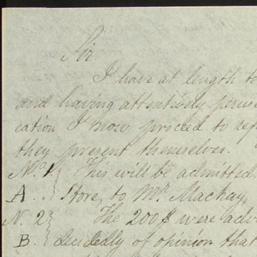 Sir
I have at length to
and having attentively perus
cation I now proceed to rep
they present themselves.
No. 1 } This will be admitted
A... } Store, to Mr. Mackay,
N. 2 } The 200$ were adv
B. } decidedly of opinion that